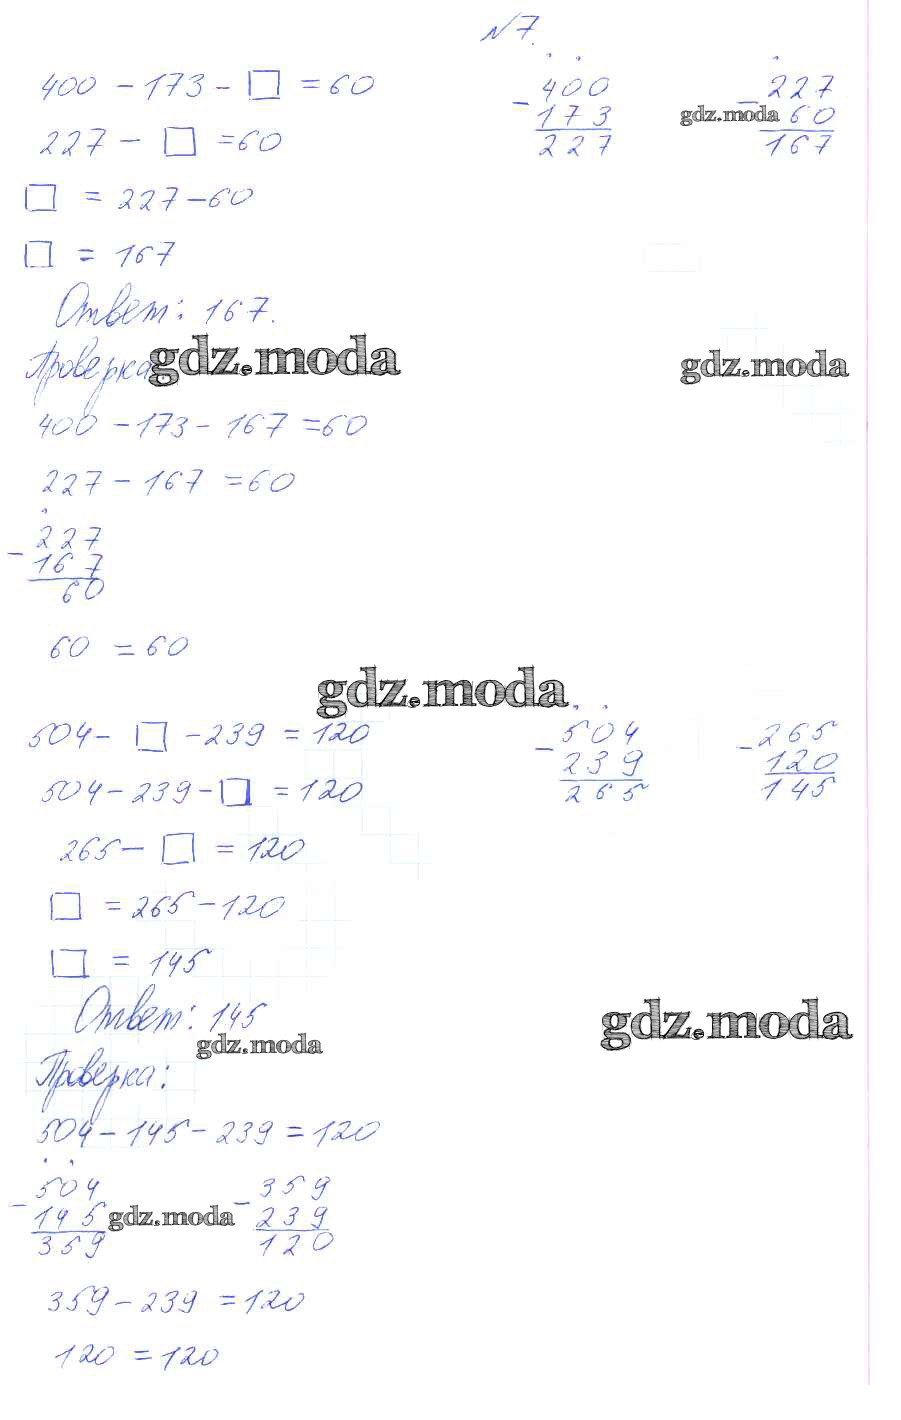 №7.
400 - 173 - □ = 60
227 - □ = 60
□ = 227 - 60
□ = 167
- 400
173
227
- 227
60
167
gdz.moda
Ответ: 167.
Проверка
gdz.moda
gdz.moda
400 - 173 - 167 = 60
227 - 167 = 60
- 227
167
60
60 = 60
gdz.moda
504 - □ - 239 = 120
504 - 239 - □ = 120
265 - □ = 120
□ = 265 - 120
□ = 145
- 504
239
265
- 265
120
145
Ответ: 145
gdz.moda
gdz.moda
Проверка:
504 - 145 - 239 = 120
- 504
145
359
gdz.moda
- 359
239
120
359 - 239 = 120
120 = 120